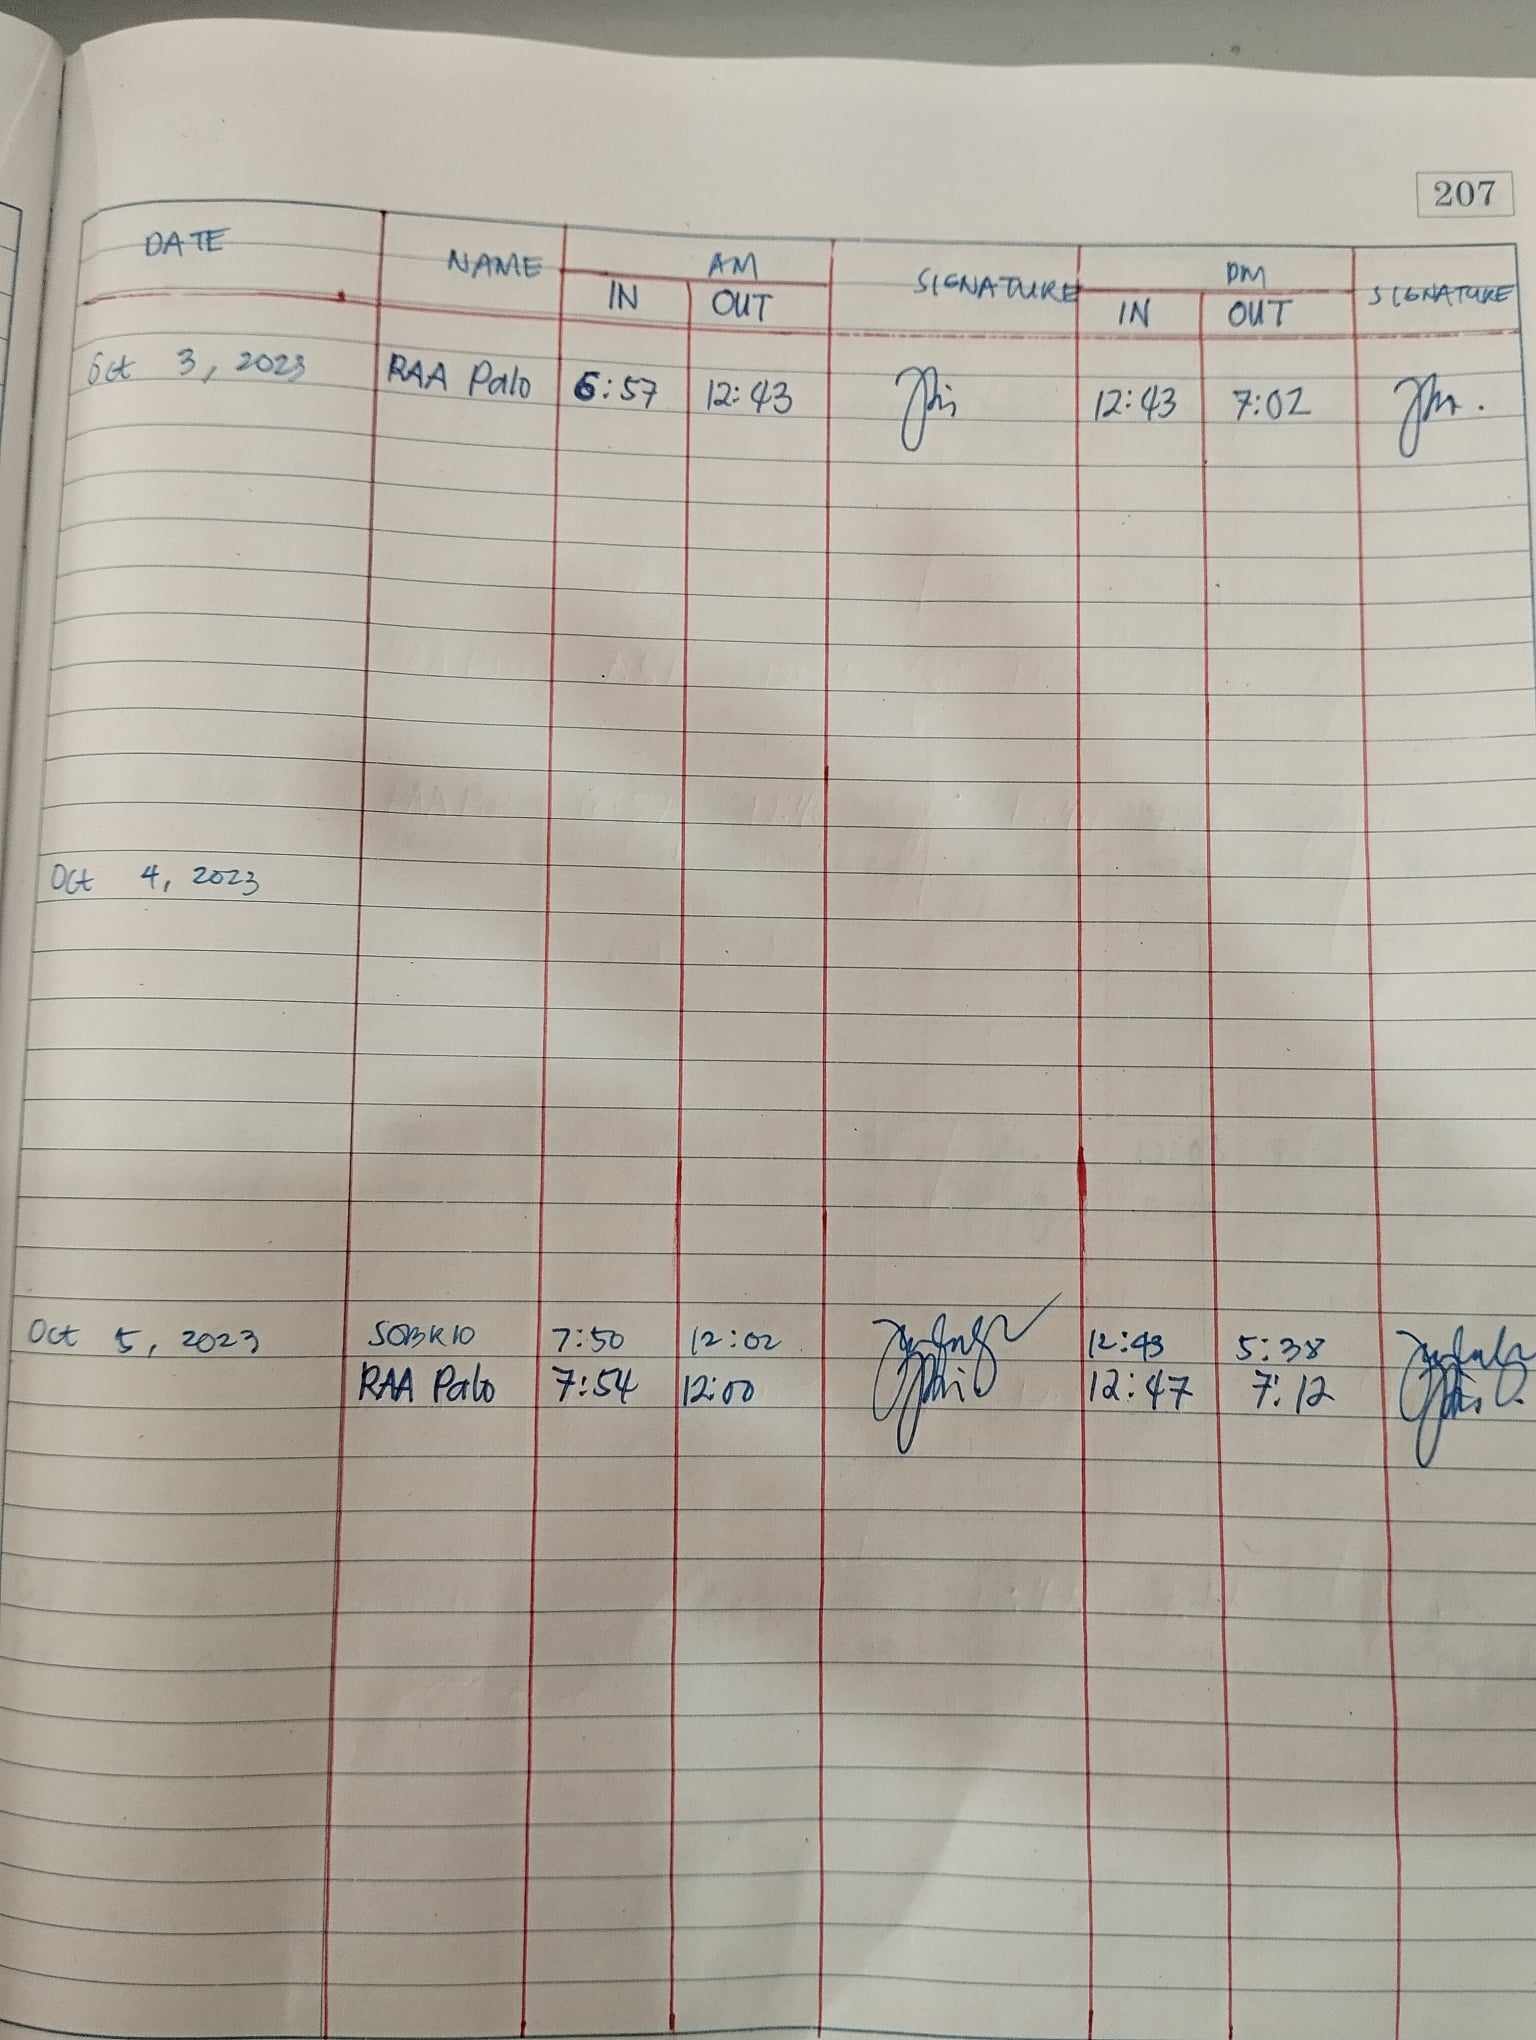 207
DATE NAME AM SIGNATURE PM SIGNATURE
IN OUT IN OUT
Oct 3, 2023 RAA Palo 6:57 12:43 12:43 7:02
Oct 4, 2023
Oct 5, 2023 SOBRIO 7:50 12:02 12:43 5:38
RAA Palo 7:54 12:00 12:47 7:12